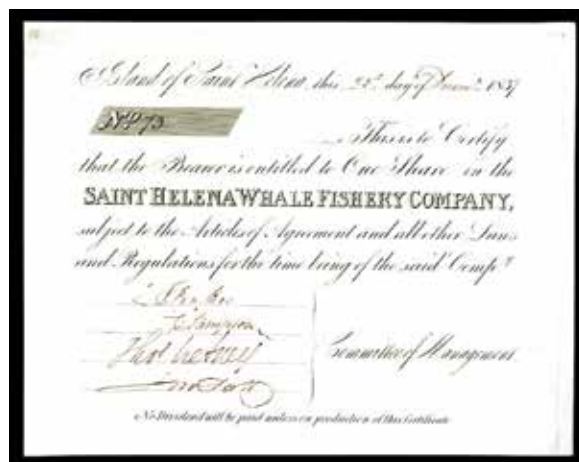 Island of Saint Helena, this 22d day of 1837
No 73
This is to Certify
that the Bearer is entitled to One Share in the
SAINT HELENA WHALE FISHERY COMPANY,
subject to the Articles of Agreement and all other Laws
and Regulations for the time being of the said Compy
Committee of Management
No Dividend will be paid unless on production of this Certificate